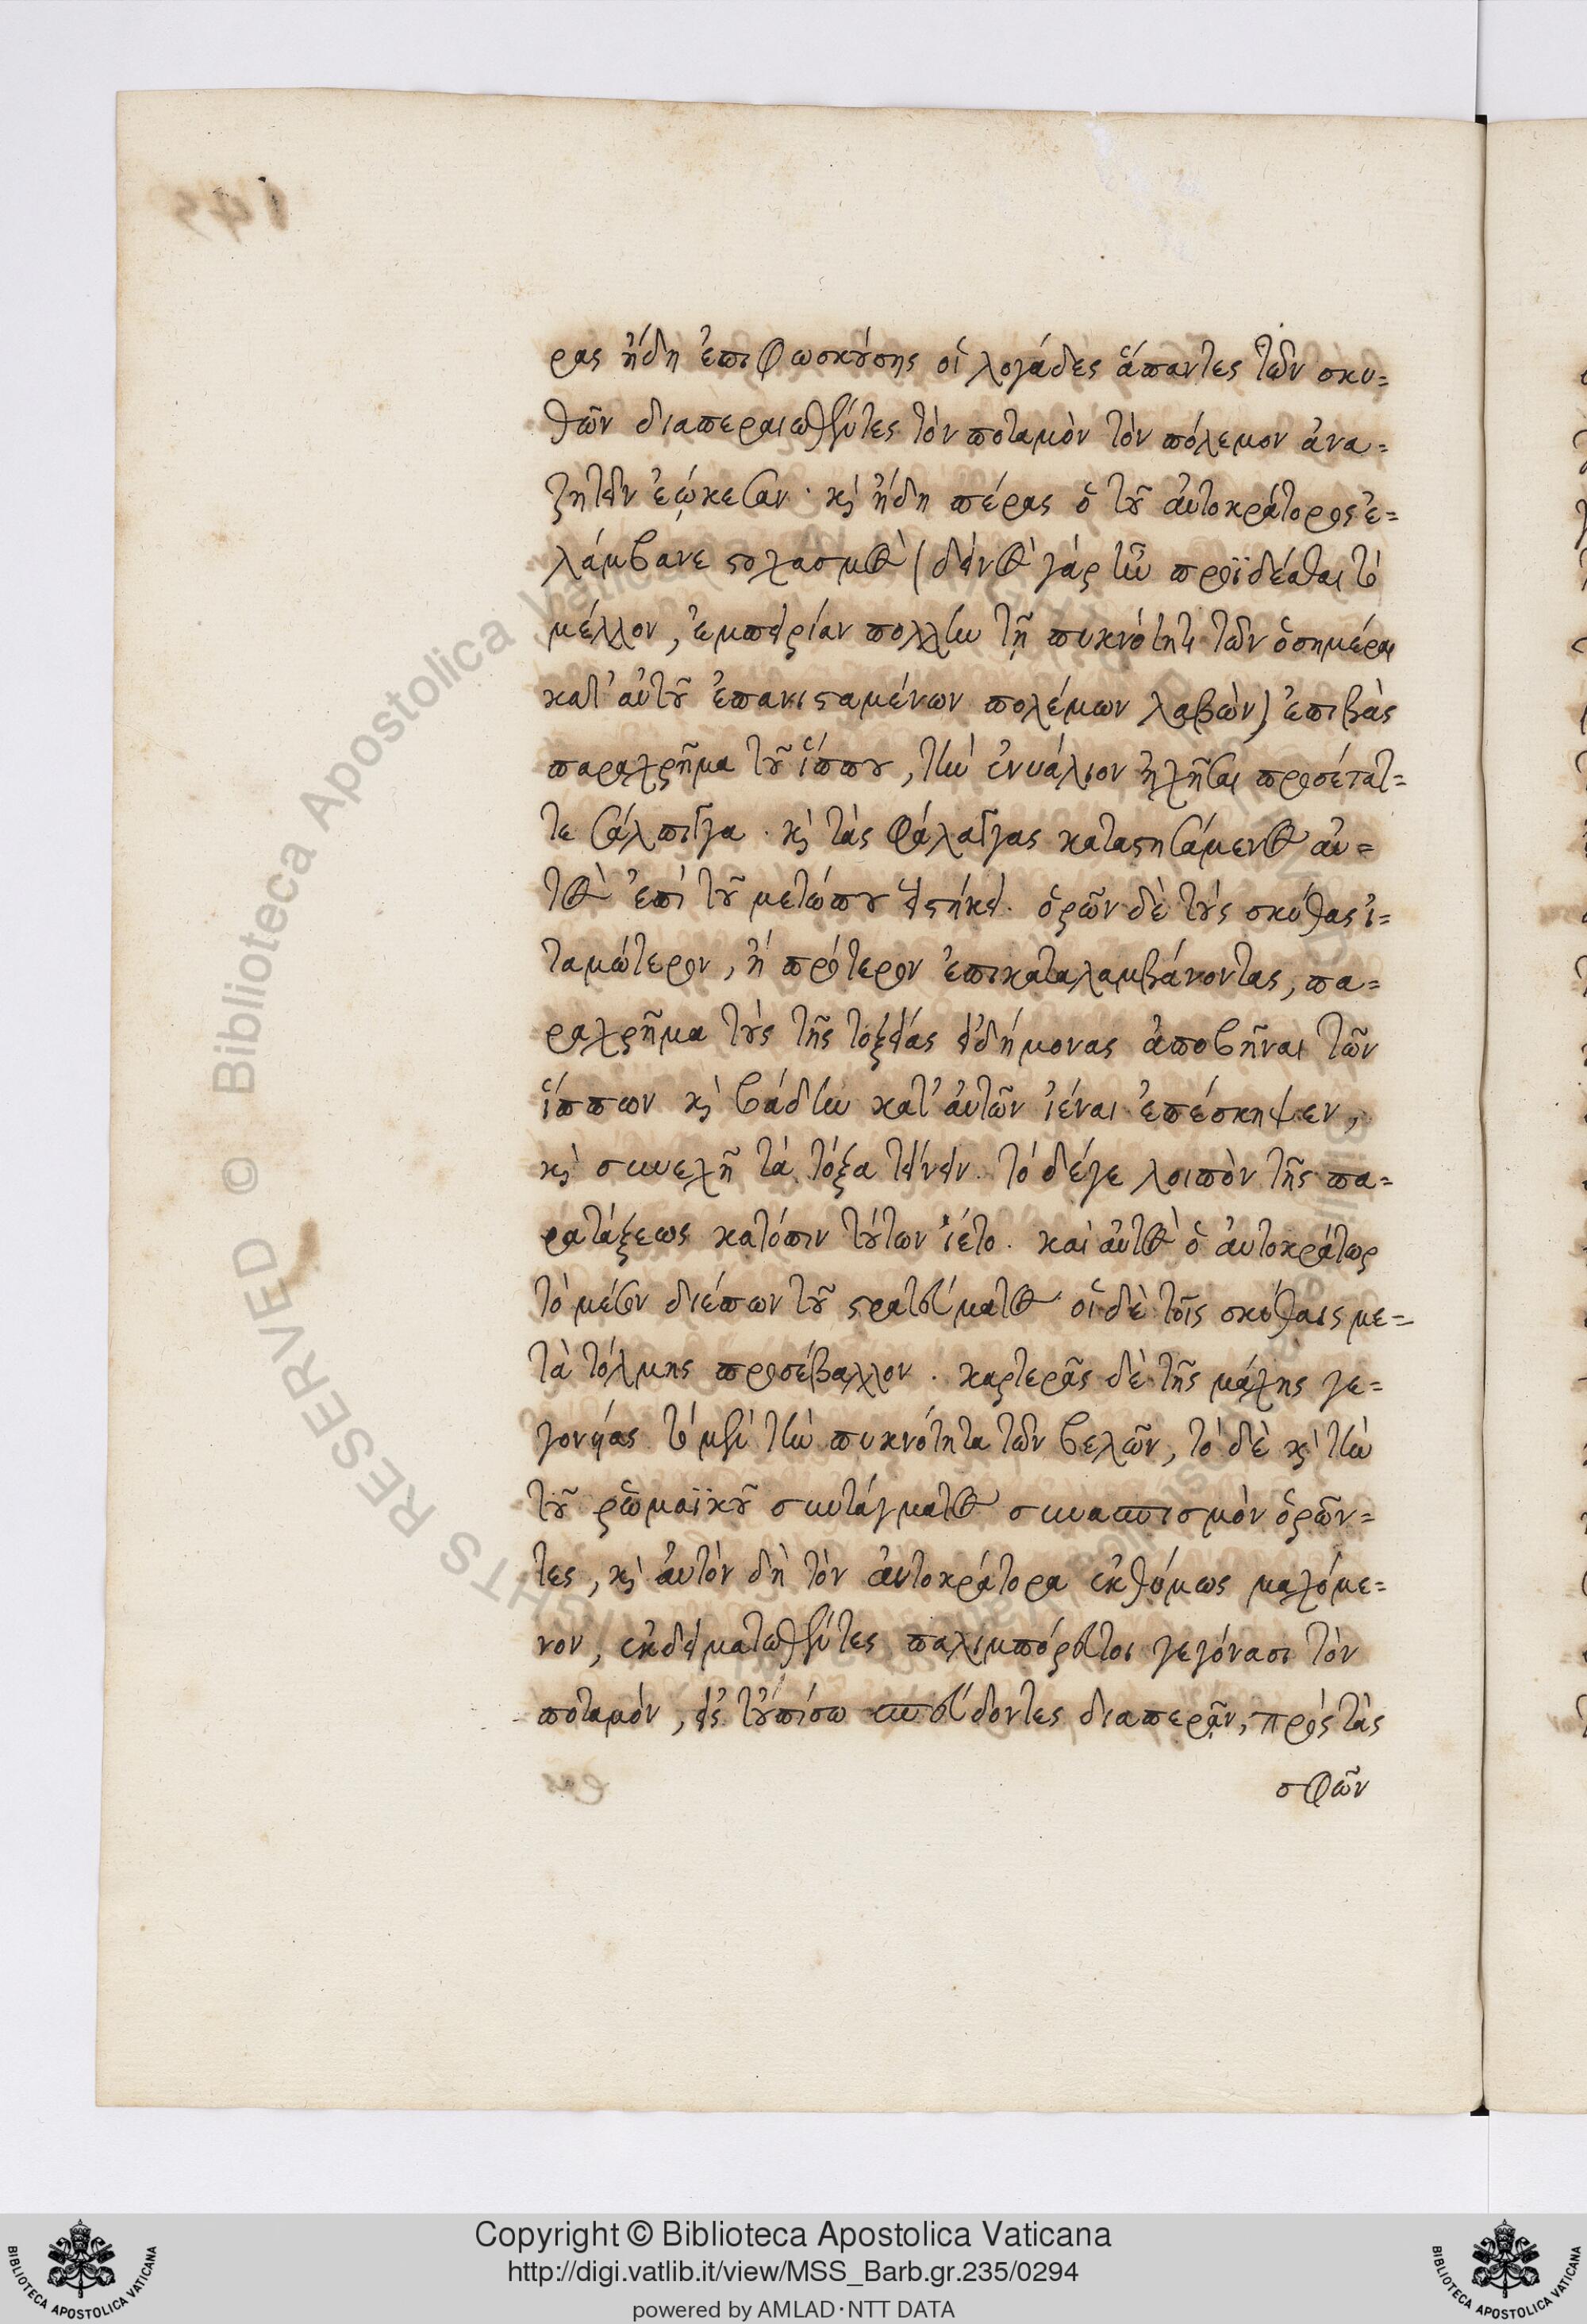 ρας ἤδη ἐπιφωσκούσης οἱ λογάδες ἅπαντες τῶν σκυ=
θῶν διαπεραιωθέντες τὸν ποταμὸν τὸν πόλεμον ἀνα=
ζητεῖν ἐῴκεσαν · καὶ ἤδη πέρας ὁ τοῦ αὐτοκράτορος ἐ=
λάμβανε στοχασμός (δεινὸς γάρ ἦν προϊδέσθαι τὸ
μέλλον, ἐμπειρίαν πολλὴν τῇ πυκνότητι τῶν ὁσημέραι
κατ' αὐτοῦ ἐπανισταμένων πολέμων λαβών) ἐπιβὰς
παραχρῆμα τοῦ ἵππου, τὴν ἐνυάλιον ἠχῆσαι προσέτατ=
τε σάλπιγγα · καὶ τὰς φάλαγγας καταστησάμενος αὐ=
τὸς ἐπὶ τοῦ μετώπου εἱστήκει. ὁρῶν δὲ τοὺς σκύθας ἰ=
ταμώτερον, ἢ πρότερον ἐπικαταλαμβάνοντας, πα=
ραχρῆμα τοὺς τῆς τοξείας εἰδήμονας ἀποβῆναι τῶν
ἵππων καὶ βάδην κατ' αὐτῶν ἰέναι ἐπέσκηψεν,
καὶ συνεχῆ τὰ τόξα τείνειν. τὸ δέγε λοιπὸν τῆς πα=
ρατάξεως κατόπιν τούτων ἵετο. καὶ αὐτὸς ὁ αὐτοκράτωρ
τὸ μέσον διέπων τοῦ στρατεύματος · οἱ δὲ τοῖς σκύθαις με=
τὰ τόλμης προσέβαλλον. καρτερᾶς δὲ τῆς μάχης γε=
γονυίας τὸ μὲν τὴν πυκνότητα τῶν βελῶν, τὸ δὲ καὶ τὴν
τοῦ ῥωμαϊκοῦ συντάγματος συνασπισμὸν ὁρῶν=
τες, καὶ αὐτὸν δὴ τὸν αὐτοκράτορα ἐκθύμως μαχόμε=
νον, ἐκδειματωθέντες παλιμπόρευτοι γεγόνασι τὸν
ποταμόν, εἰς τοὐπίσω σπεύδοντες διαπερᾷν, πρὸς τὰς
σφῶν
Copyright © Biblioteca Apostolica Vaticana
http://digi.vatlib.it/view/MSS_Barb.gr.235/0294
powered by AMLAD·NTT DATA